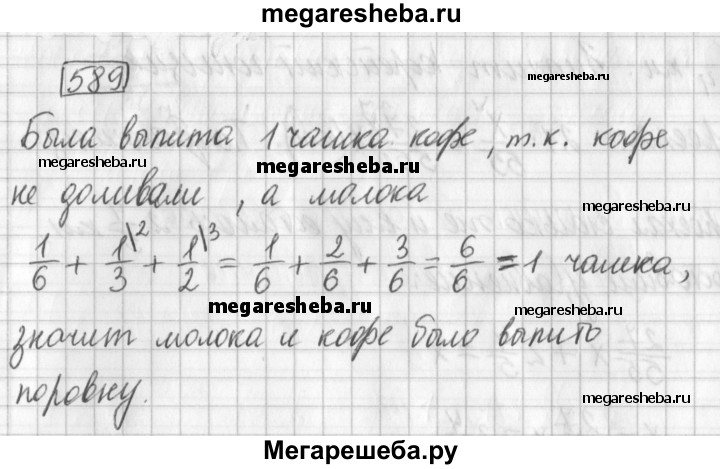 megaresheba.ru
589
megaresheba.ru
Была выпита 1 чашка кофе, т.к. кофе
megaresheba.ru
megaresheba.ru
не доливали, а молока
megaresheba.ru
1/6 + 1/3\2 + 1/2\3 = 1/6 + 2/6 + 3/6 = 6/6 = 1 чашка,
megaresheba.ru
значит молока и кофе было выпито
поровну.
megaresheba.ru
Мегарешеба.ру